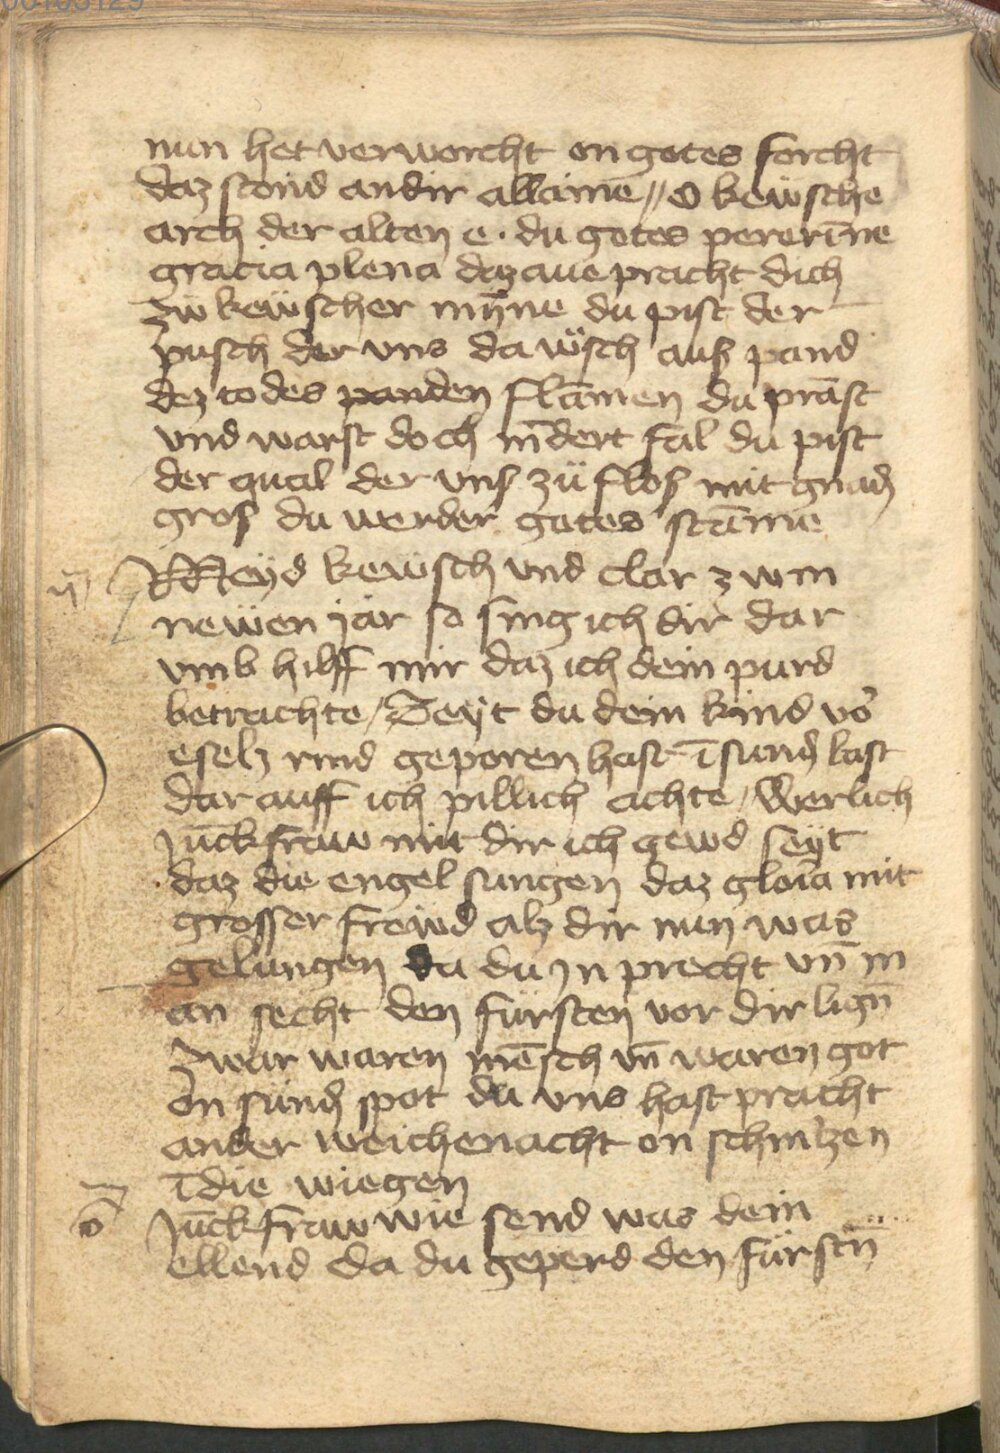 nun het verworcht on gotes forcht
daz stond an dir allaine // o kewsche
arch der alten e · du gotes pererīne
gracia plena daz aue pracht dich
zw kewscher mȳne du pist der
pusch der vns da wsch auß pand
dez todes panden flāmen du prāst
vnd warst doch nd̄ert fal du pist
der qual der vnß zü floß mit gnad
groß du werder gotes stāme
Meyd kewsch vnd clar zwm
newen jar so sing ich dir dar
vmb hilff mir daz ich dein purd
betrachte / Seyt du dein kind vor
eselz rind geporen hast ī sund last
dar auff ich pillich achte / Werlich
Jūckfraw mit dir ich gewd seyt
daz die engel sungen daz gloīa mit
grosser frewd alz dir nun was
gelungen da du jn precht vn̄ jn
an secht den fürsten vor dir lign̄
Zwar waren mēsch vn̄ waren got
on sünd spot du vns hast pracht
an der weichenacht on schmitzen
ī die wiegen
ō Jūckfraw wie send was dein
ellend da du geperd den fürstn̄